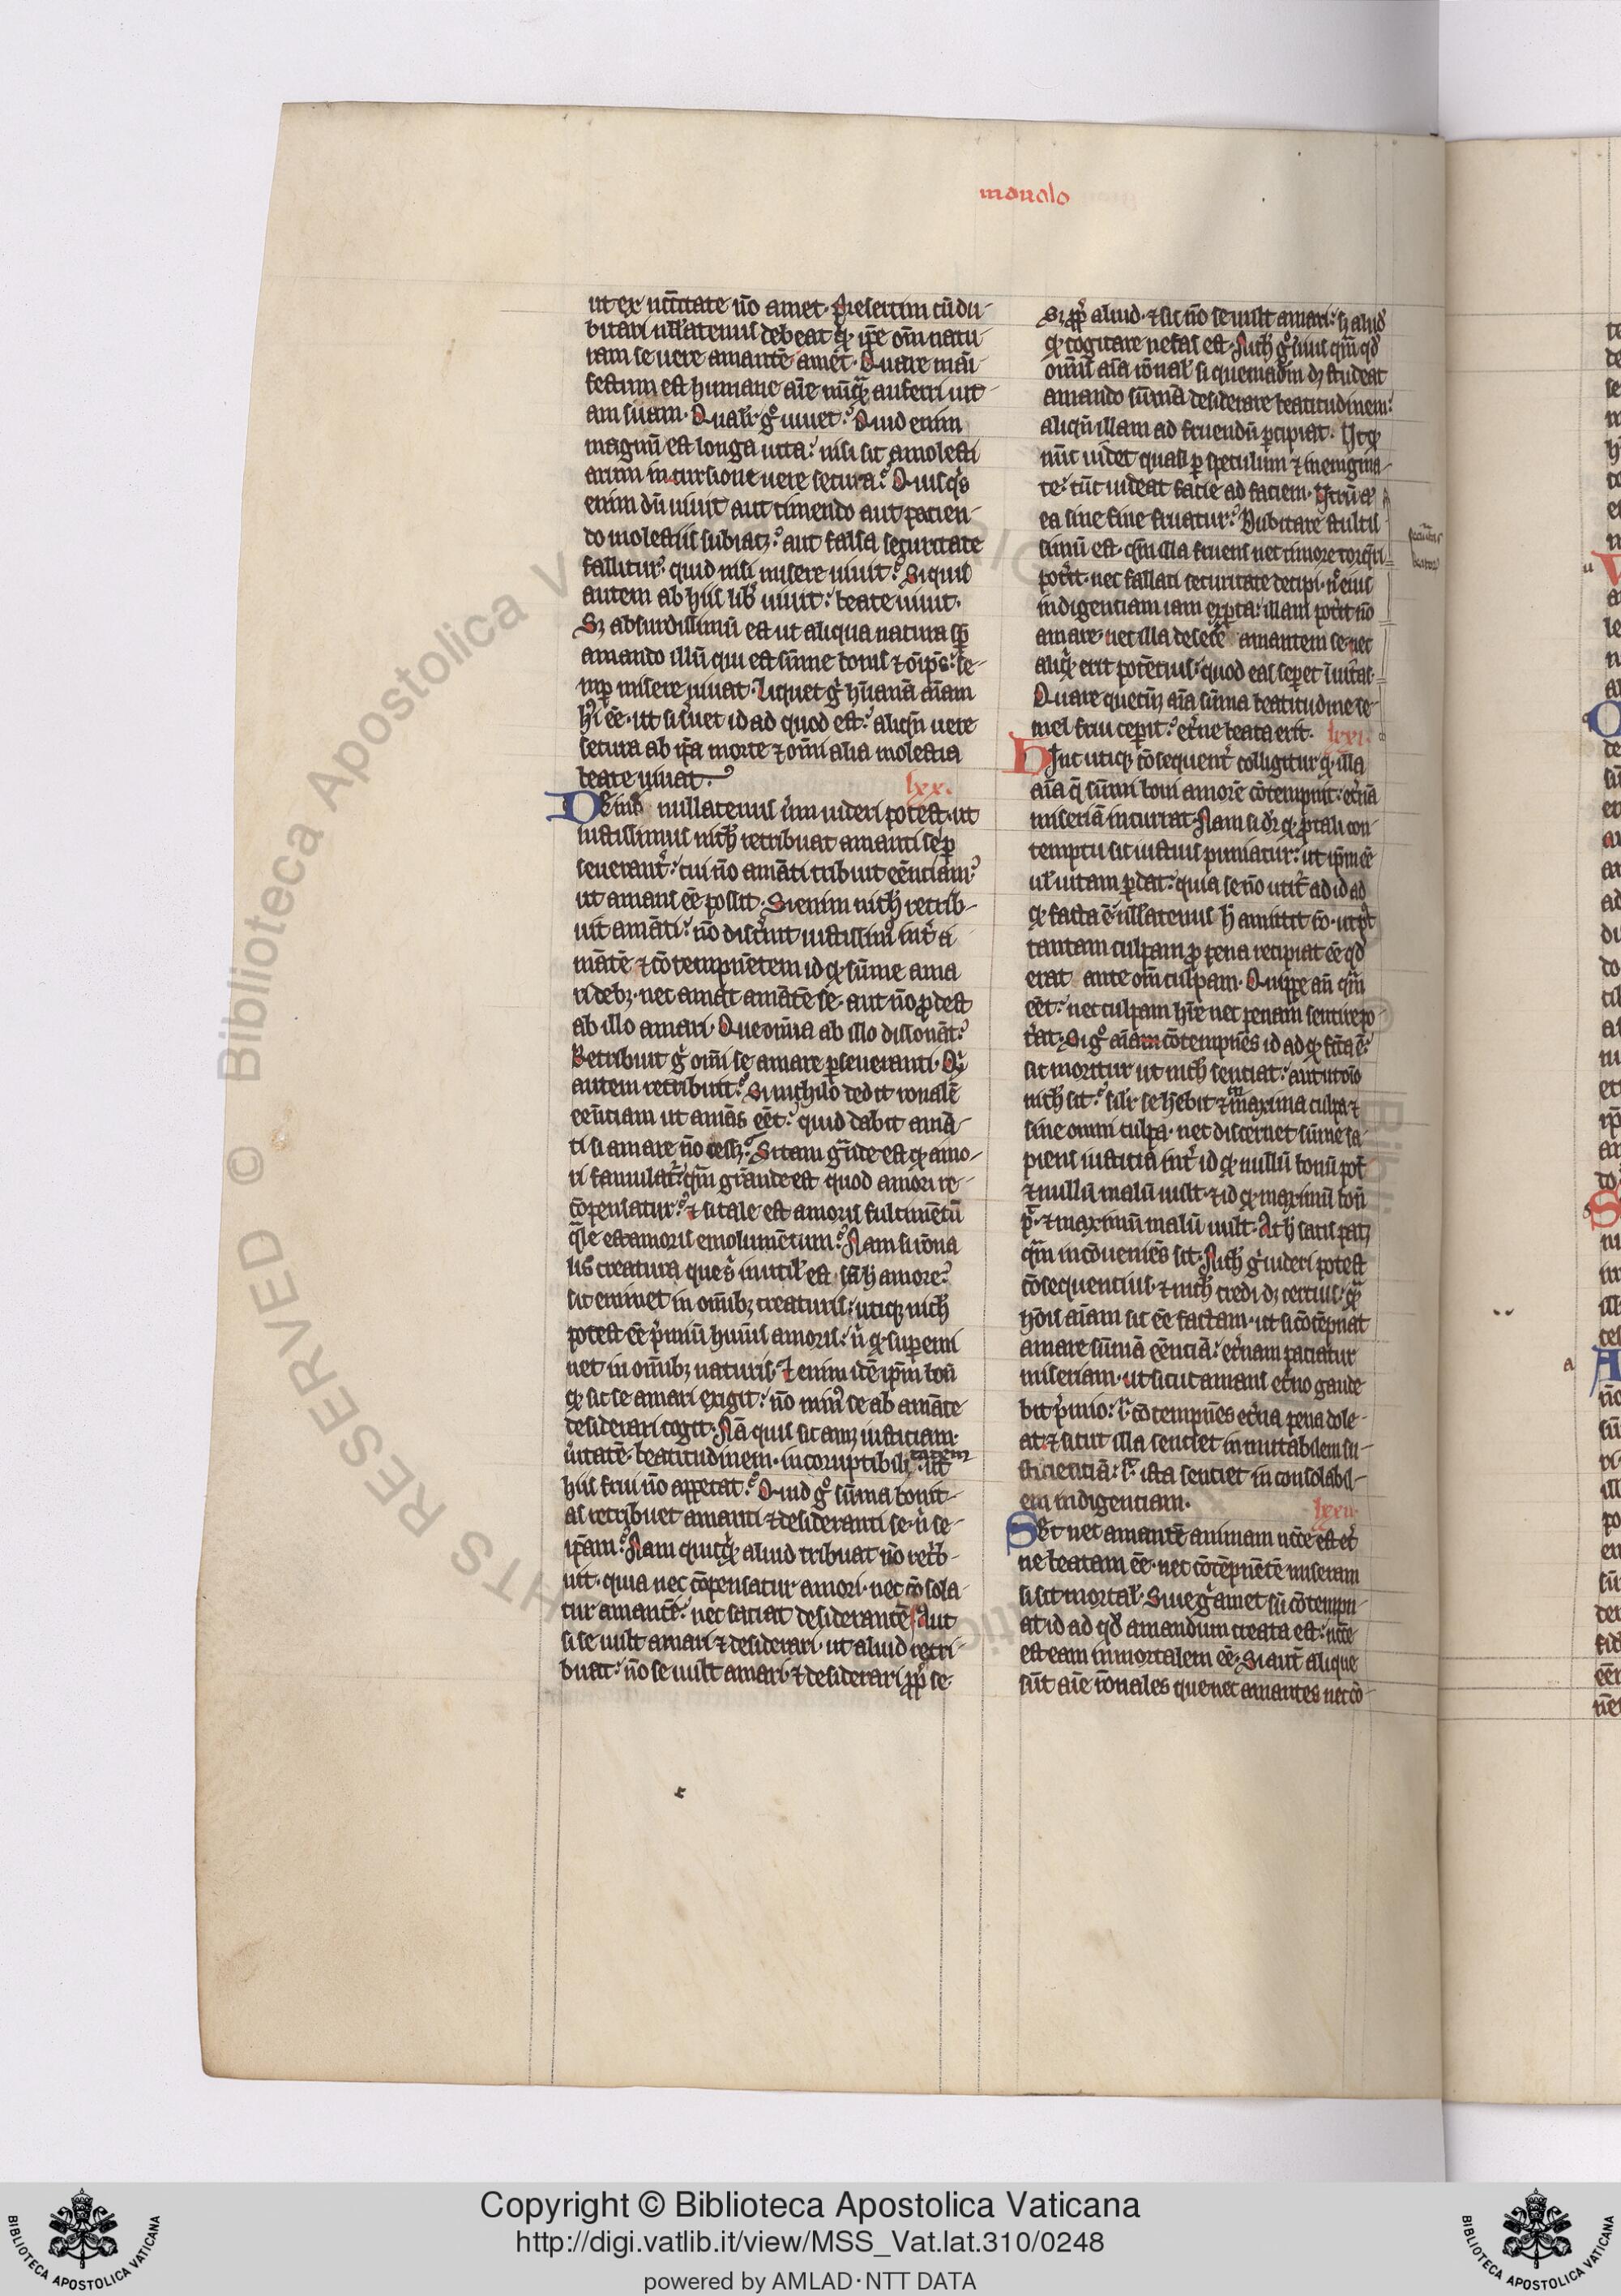 monolo
ut ex uitate ño amet. Presertim cũ du-
bitari nllatenus debeat q ipẽ om̃ natu
ram se uere amantẽ amet. Quare mãi-
festum est humane aĩe nũq auferri uit
am suam. Qualr g uiuet. Quid enim
magnũ est longa uita: nisi sit a molesti
arum incursione uere secura. Quisqs
enim dũ uiuit aut timendo aut patien-
do molestiis subiacȝ: aut falsa securitate
fallitur: quid nisi misere uiuit. Siquis
autem ab hiis lib uiuit: beate uiuit.
Sȝ absurdissimũ est ut aliqua natura sp
amando illũ qui est sũme bonus & oĩps: se-
mp misere uiuat. Liquet g hũanã aĩam
hi eẽ. ut si suet id ad quod est: aliqñ uere
secura ab ipa morte & om̃i alia molestia
beate uiuat.
lxx.
Deinde nullatenus uim uideri potest. ut
iustissimus nich retribuat amanti se p
seuerant: cui ño amãti tribuit eẽntiam:
ut amans eẽ possit. Si enim nich retrib-
uit amãti: ño discnit iustissim int a
mãtẽ & cõtempnẽtem id q sũme ama
ri debȝ. nec amat amãtẽ se. aut ño pdest
ab illo amari. Que om̃ia ab illo dissonãt.
Retribuit g om̃i se amare pseueranti. Qd
autem retribuit. Si nichilo dedit ronalẽ
eẽntiam ut amãs eẽt: quid dabit amã-
ti si amare ño cesȝ. Si tam gñde est q amo-
ri famulat: qm̃ grãnde est quod amori re-
cõpensatur: & si tale est amoris fulcimẽtũ
qle est amoris emolumẽtum. Nam si rõna
lis creatura que s inutil est sñ h amore:
sic eminet in om̃ibȝ creaturis: utiq nich
potest eẽ pmiũ huius amoris: ñ q supemi
net in om̃ibȝ naturis. Etenim idẽ ipm bonũ
q sic se amari exigit: ño min se ab amãte
desiderari cogit. Nã quis sic amȝ iusticiam.
uitatẽ. beatitudinem. incoruptibilitatem. ut
hiis frui ño appetat. Quid g sũma bonit-
as retribuet amanti & desideranti se. ñ se-
ipam. Nam quicq aliud tribuat ño retrib-
uit. quia nec cõpensatur amori. nec cõsola-
tur amantẽ. nec saciat desiderantẽ. Aut
si se uult amari & desiderari. ut aliud retri-
buat: ño se uult amari & desiderari pp se.
Sȝ pp aliud. & sic ño se uult amari. h aliud
q cogitare nefas est. Nich g uius qm̃ qd
om̃is aĩa rõnal si quemadm̃ dȝ studeat
amando sũmã desiderare beatitudinem:
aliqñ illam ad fruendũ pcipiat. Ut q
nũc uidet quasi p speculum & in enigma-
te: tũc uideat facie ad faciem. Utrũ a
ea sine fine fruatur: Dubitare stultis
simũ est. qm̃ illa fruens nec timore torqri
potit. nec fallaci securitate decipi. ñ eius
indigentiam iam expta: illam potit ño
amare. nec illa desere amantem se. nec
aliq erit potẽtius: quod eas sepet ĩuitas.
Quare quecũ aĩa sũma beatitudine se-
mel frui cepit: etne beata erit.
lxxi.
Hinc utiq cõsequent colligitur q illa
aĩa q sũmi boni amorẽ cõtempnit: etnã
miseriã incurrat. Nam si dr q p tali con-
temptu sic iustius puniatur: ut ipm eẽ
ul uitam pdat: quia se ño utit ad id ad
q facta ẽ: nllatenus h amittit rõ. ut pt
tantam culpam p pena recipiat eẽ qd
erat ante om̃ culpam. Quippe añ qm̃
eẽt: nec culpam hre nec penam sentire po-
tat. Si g aĩam cõtempnẽs id ad q fcã ẽ:
sic moritur ut nich sentiat: aut ut oĩo
nich sit: silr se hebit & in maxima culpa &
sine omni culpa. nec discernet sũme sa-
piens iusticia int id q nullũ bonũ pot
& nullũ malũ uult. & id q maximũ bonũ
p̃. & maximũ malũ uult. At h satis patȝ
qm̃ incõueniẽs sit. Nich g uideri potest
cõsequencius. & nich credi dȝ certius: q
hõis aĩam sic eẽ factam. ut si cõtẽpnat
amare sũmã eẽnciã: etnam paciatur
miseriam. ut sicut amans etno gaude
bit pmio: sic cõtempnẽs etna pena dole-
at. & sicut illa senciet inmutabilem su-
fficientiã: sic ista senciet in consolabil-
em indigentiam.
lxxii.
Set nec amantẽ animam ncẽe est et
ne beatam eẽ. nec cõtẽpnẽtẽ miseram
si sit mortal. Siue g amet sũ cõtempn-
at id ad qd amandum creata est: ncẽe
est eam inmortalem eẽ. Si aut alique
sũt aĩe rõnales que nec amantes nec cõ-
Copyright © Biblioteca Apostolica Vaticana
http://digi.vatlib.it/view/MSS_Vat.lat.310/0248
powered by AMLAD·NTT DATA
BIBLIOTECA APOSTOLICA VATICANA
BIBLIOTECA APOSTOLICA VATICANA